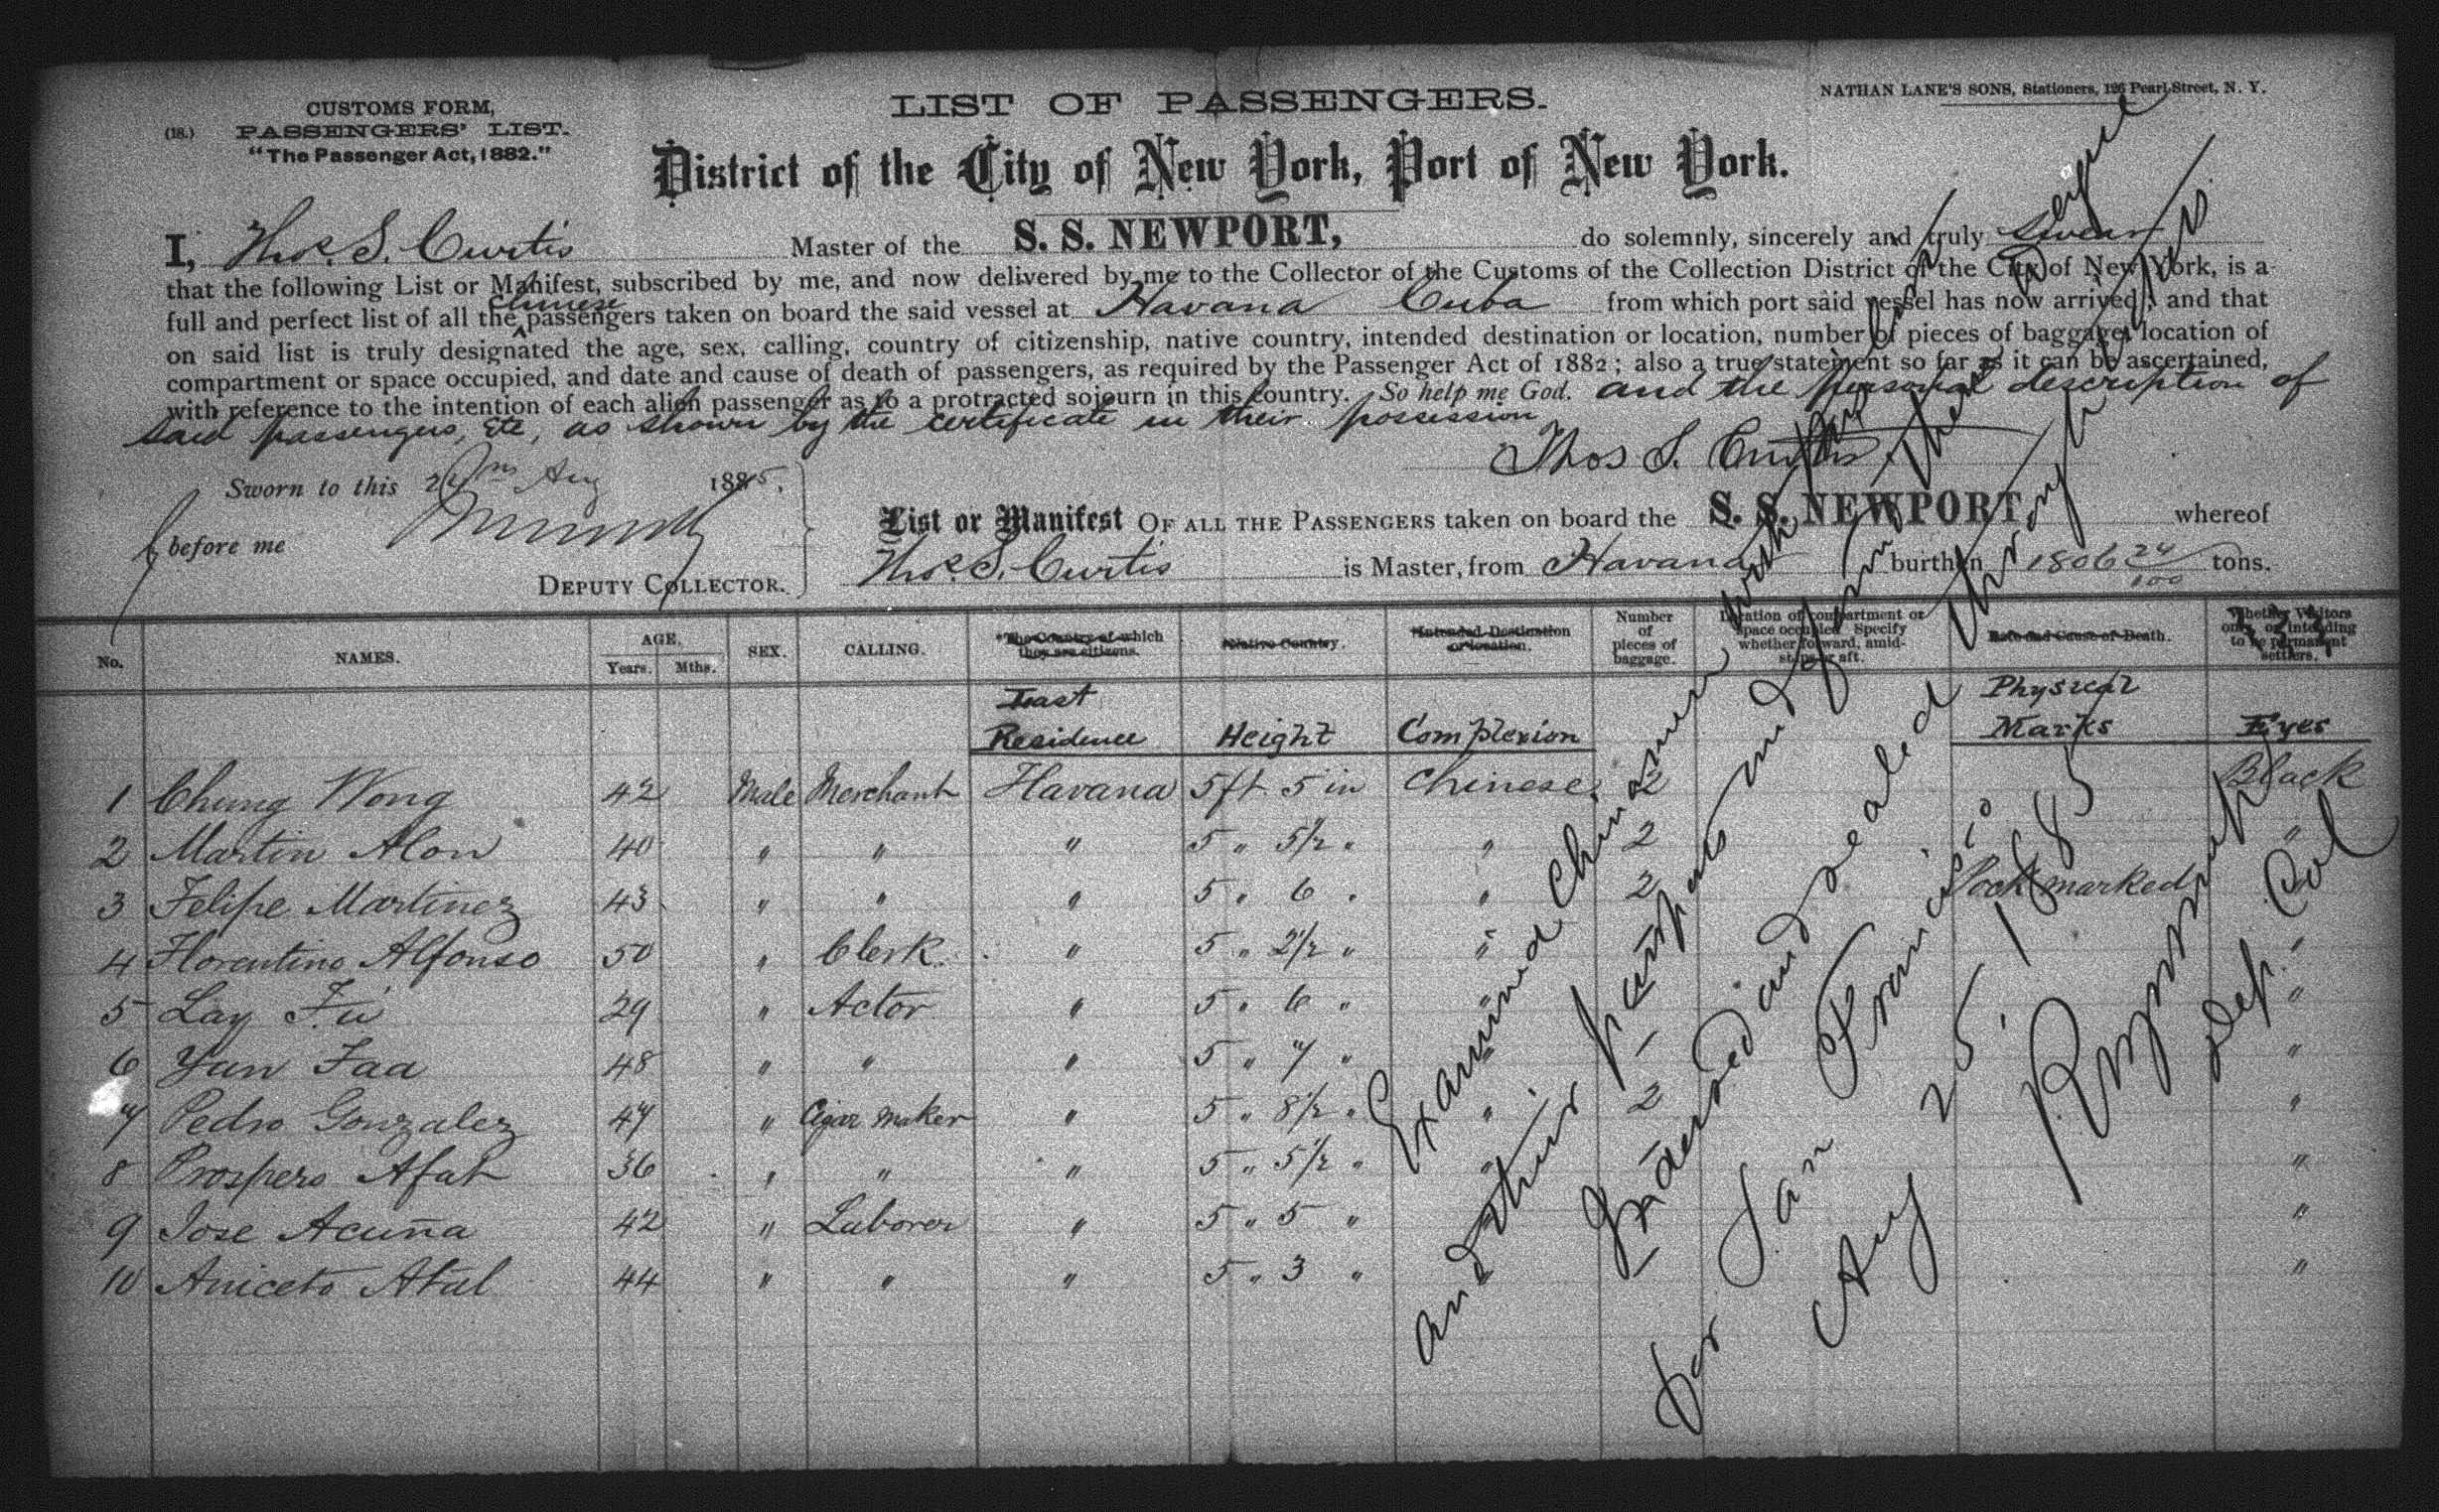 CUSTOMS FORM,
(18.) PASSENGERS' LIST.
"The Passenger Act, 1882."
LIST OF PASSENGERS.
NATHAN LANE'S SONS, Stationers, 126 Pearl Street, N. Y.
District of the City of New York, Port of New York.
I, Thos. S. Curtis Master of the S. S. NEWPORT, do solemnly, sincerely and truly Swear
that the following List or Manifest, subscribed by me, and now delivered by me to the Collector of the Customs of the Collection District of the City of New York, is a
full and perfect list of all the Chinese passengers taken on board the said vessel at Havana Cuba from which port said vessel has now arrived; and that
on said list is truly designated the age, sex, calling, country of citizenship, native country, intended destination or location, number of pieces of baggage, location of
compartment or space occupied, and date and cause of death of passengers, as required by the Passenger Act of 1882; also a true statement so far as it can be ascertained,
with reference to the intention of each alien passenger as to a protracted sojourn in this country. So help me God. and the personal description of
said passengers, etc, as shown by the certificate in their possession
Thos S. Curtis
Sworn to this Aug 1885.
before me
DEPUTY COLLECTOR.
List or Manifest OF ALL THE PASSENGERS taken on board the S. S. NEWPORT whereof
Thos. S. Curtis is Master, from Havana burthen 1806 24/100 tons.
No. NAMES. AGE. Years. Mths. SEX. CALLING. The Country of which they are citizens. Native Country. Intended Destination or location. Number of pieces of baggage. Location of compartment or space occupied. Specify whether forward, amidships or aft. Date and Cause of Death. Whether Visitors only, or intending to be permanent settlers.
Last Residence Height Complexion Physical Marks Eyes
1 Chung Wong 42 Male Merchant Havana 5 ft 5 in Chinese 2 Black
2 Martin Alon 40 " " " 5 " 5 1/2 " " 2 "
3 Felipe Martinez 43 " " " 5 " 6 " " 2 Pock marked "
4 Florentino Alfonso 50 " Clerk " 5 " 2 1/2 " " "
5 Lay Fu 29 " Actor " 5 " 6 " " "
6 Yun Faa 48 " " " 5 " 7 " " "
7 Pedro Gonzalez 47 " Cigar Maker " 5 " 8 1/2 " " 2 "
8 Prospero Afat 36 " " " 5 " 5 1/2 " " "
9 Jose Acuña 42 " Laborer " 5 " 5 " " "
10 Aniceto Atal 44 " " " 5 " 3 " " "
Examined Chinamen
and their passports and
Indersed and sealed
for San Francisco
Aug 25, 1885
Dep. Col